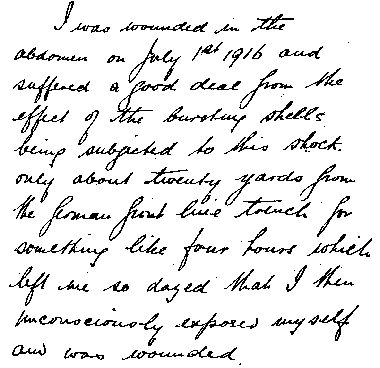 I was wounded in the
abdomen on July 1st 1916 and
suffered a good deal from the
effect of the bursting shells
being subjected to this shock.
only about twenty yards from
the German front line trench for
something like four hours which
left me so dazed that I then
unconsciously exposed myself
and was wounded.